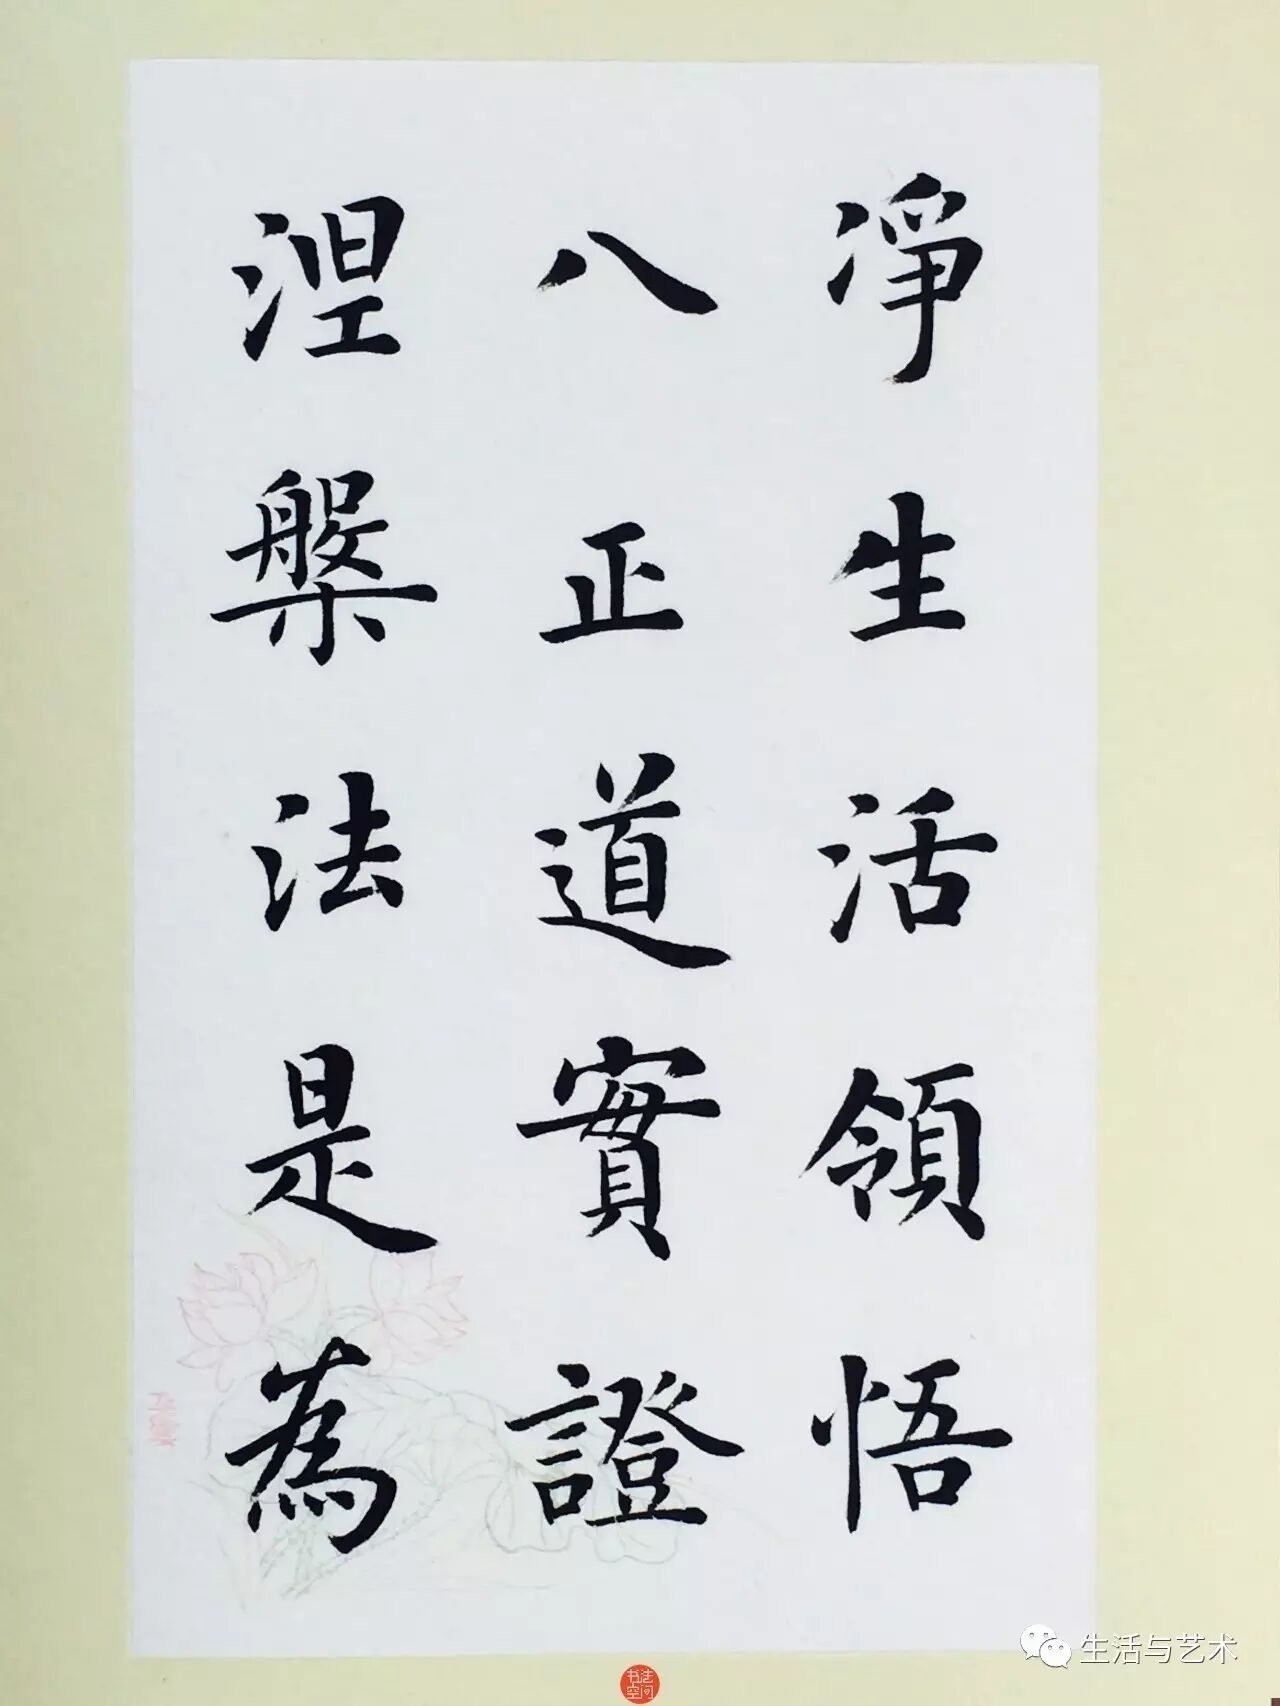 淨生活領悟
八正道實證
涅槃法是為
生活与艺术
书法空间